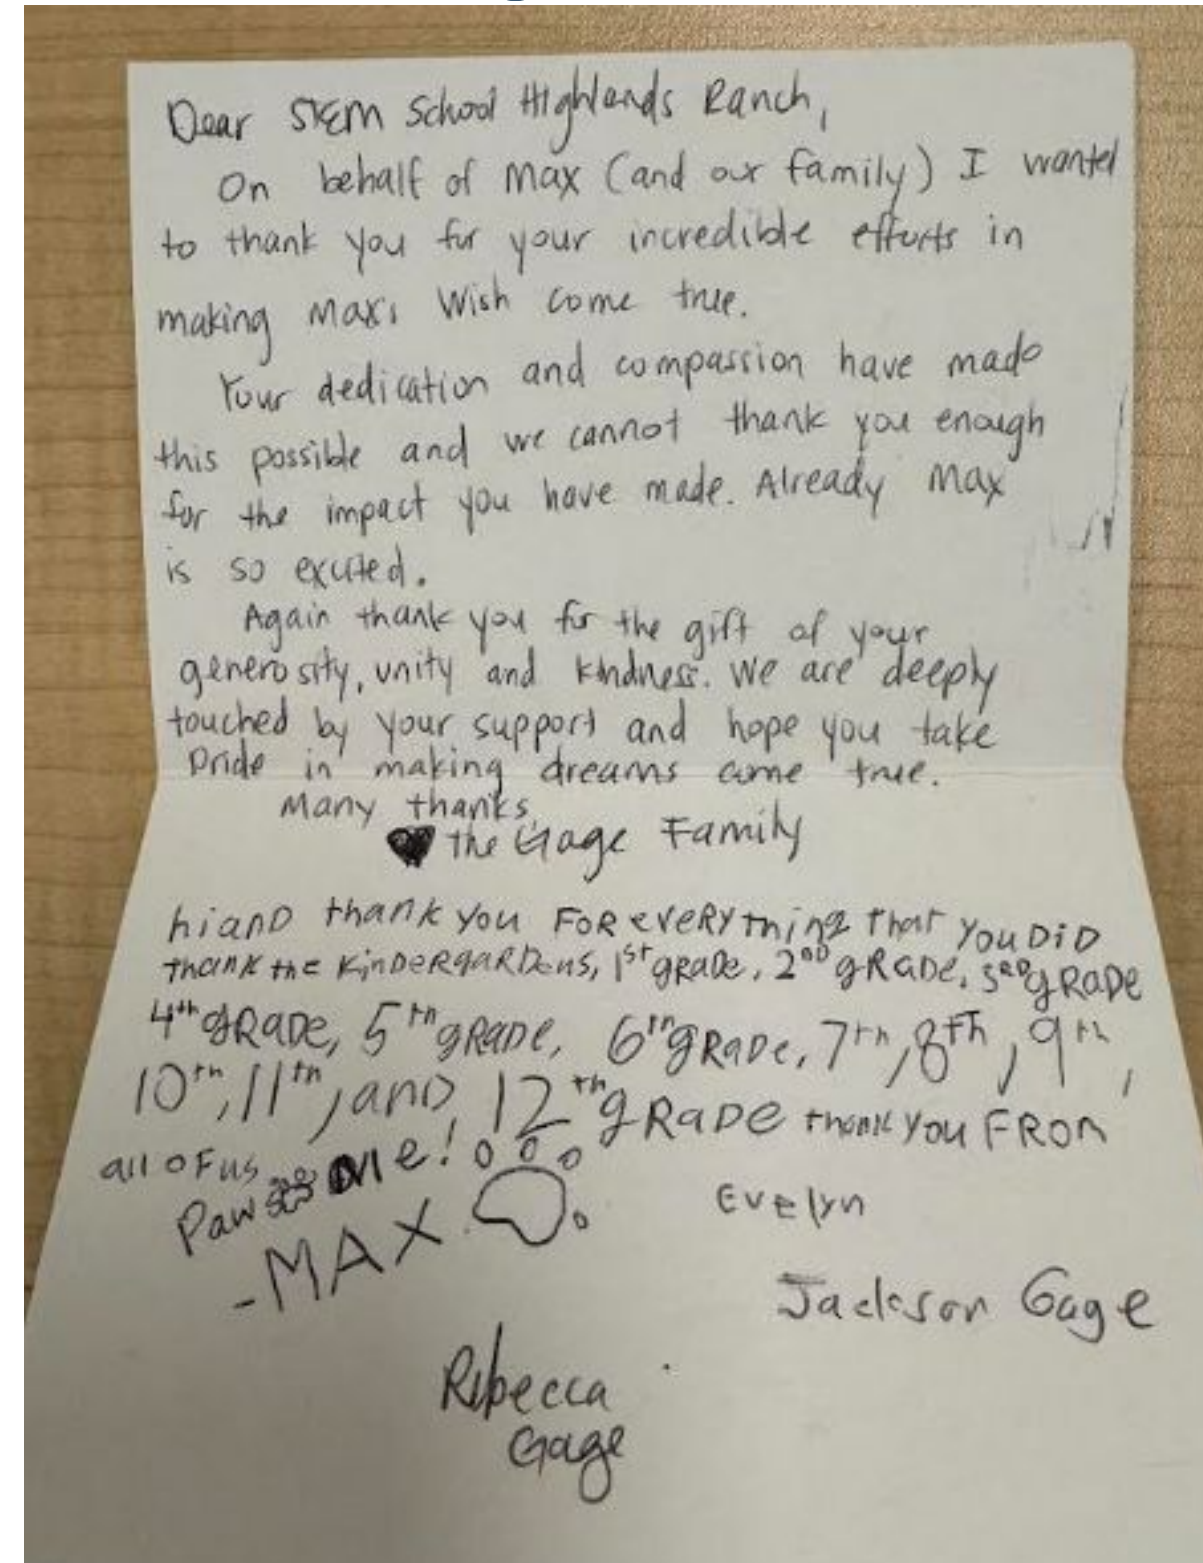 Dear STEM School Highlands Ranch,
On behalf of Max (and our family) I wanted
to thank you for your incredible efforts in
making Max's Wish come true.
Your dedication and compassion have made
this possible and we cannot thank you enough
for the impact you have made. Already Max
is so excited.
Again thank you for the gift of your
generosity, unity and kindness. We are deeply
touched by your support and hope you take
Pride in making dreams come true.
Many thanks,
the Gage Family
hi anD thank you FOR eveRy thing that you DiD
thank the KinDeRgaRDens, 1st gRaDe, 2nD gRaDe, 3RD gRaDe
4th gRaDe, 5th gRaDe, 6th gRaDe, 7th, 8th, 9th,
10th, 11th, and 12th gRaDe thank you FROm
all oF us
Paws me!
-MAX
Evelyn
Jackson Gage
Rebecca
Gage